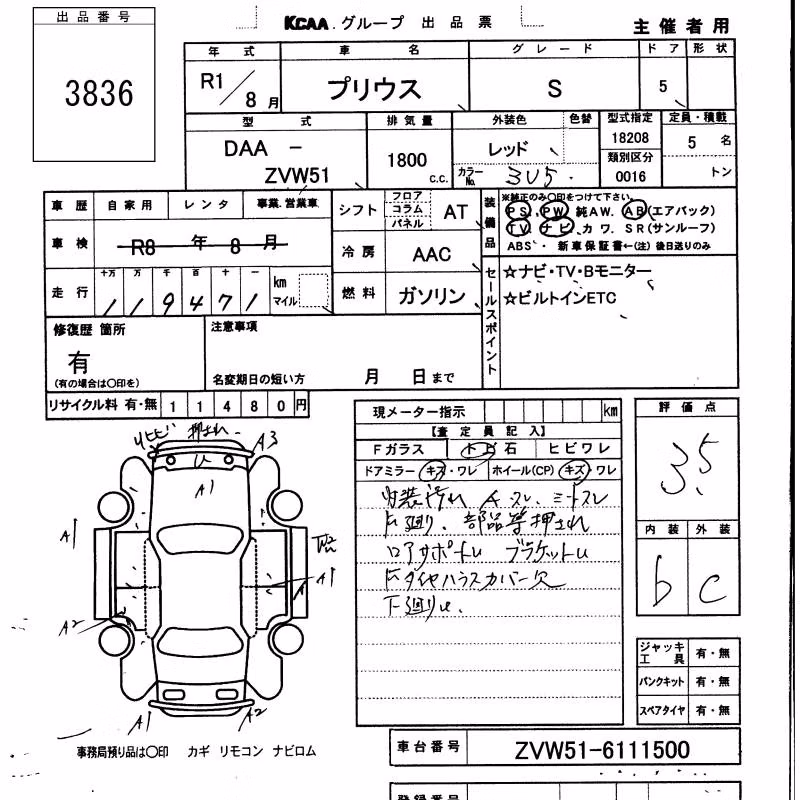 出品番号
3836
KCAA.グループ 出品票
主催者用
年式 車名 グレード ドア 形状
R1/8月 プリウス S 5
型式 排気量 外装色 色替 型式指定 定員・積載
DAA - ZVW51 1800 c.c. レッド 18208 5名
カラーNo. 3U5 類別区分 0016 トン
車歴 自家用 レンタ 事業.営業車
車検 R8年8月
走行 十万 万 千 百 十 一 km マイル
119471
シフト フロア コラム パネル AT
冷房 AAC
燃料 ガソリン
装備品
※純正のみ〇印をつけて下さい。
PS.PW 純AW. AB(エアバック)
TV ナビ カワ. SR(サンルーフ)
ABS・新車保証書←(注)後日送りのみ
セールスポイント
☆ナビ・TV・Bモニター
☆ビルトインETC
修復歴 箇所
有
(有の場合は〇印を)
注意事項
名変期日の短い方 月 日まで
リサイクル料 有・無 11480円
現メーター指示 km
【査定員記入】
Fガラス トビ石 ヒビワレ
ドアミラー キズ・ワレ ホイール(CP) キズ・ワレ
内装汚れ スレ、シートスレ
下廻り、部品等押され
ロアサポートU ブラケットU
下タイヤハウスカバー欠
下廻りU.
評価点
3.5
内装 外装
b C
ジャッキ工具 有・無
パンクキット 有・無
スペアタイヤ 有・無
リヒビ 押され A3
U
A1
A1
A1
A2
A1 A2
事務局預り品は〇印 カギ リモコン ナビロム
車台番号 ZVW51-6111500
登録番号